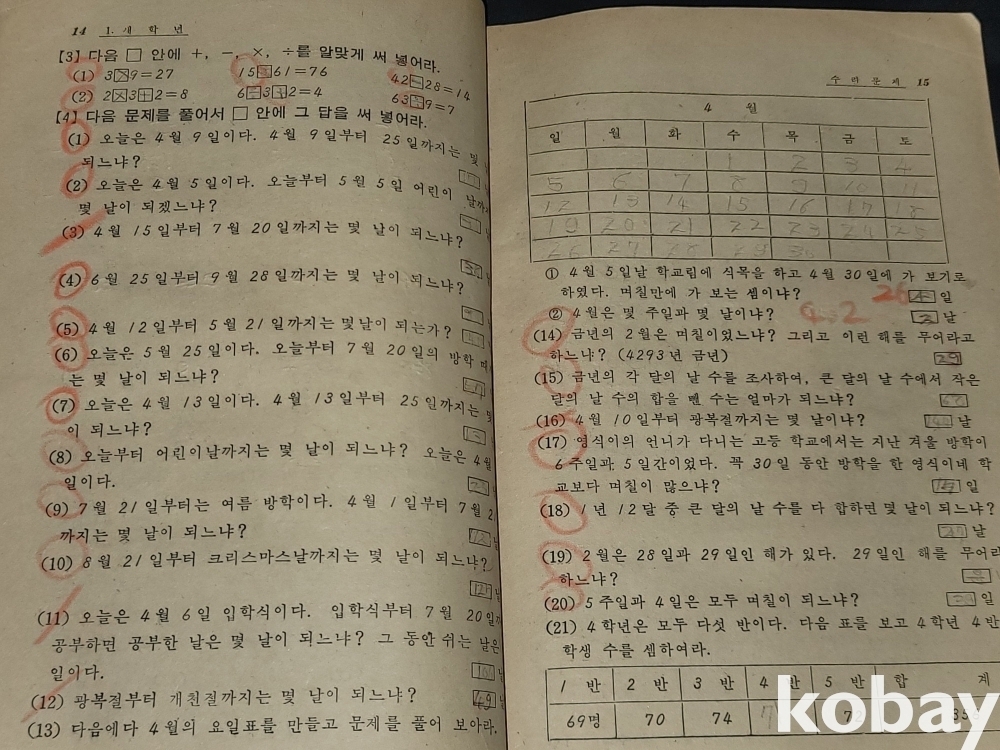 14 1. 새 학 년
[3] 다음 □ 안에 +, −, ×, ÷를 알맞게 써 넣어라.
(1) 3×9=27 15 61=76 42−28=14
(2) 2×3+2=8 6÷3+2=4 63÷9=7
[4] 다음 문제를 풀어서 □ 안에 그 답을 써 넣어라.
(1) 오늘은 4월 9일이다. 4월 9일부터 25일까지는 몇
되느냐?
(2) 오늘은 4월 5일이다. 오늘부터 5월 5일 어린이 날까지
몇 날이 되겠느냐?
(3) 4월 15일부터 7월 20일까지는 몇 날이 되느냐?
(4) 6월 25일부터 9월 28일까지는 몇 날이 되느냐?
(5) 4월 12일부터 5월 21일까지는 몇날이 되는가?
(6) 오늘은 5월 25일이다. 오늘부터 7월 20일의 방학
는 몇 날이 되느냐?
(7) 오늘은 4월 13일이다. 4월 13일부터 25일까지는 몇
이 되느냐?
(8) 오늘부터 어린이날까지는 몇 날이 되느냐? 오늘은 4월
일이다.
(9) 7월 21일부터는 여름 방학이다. 4월 1일부터 7월
까지는 몇 날이 되느냐?
(10) 8월 21일부터 크리스마스날까지는 몇 날이 되느냐?
(11) 오늘은 4월 6일 입학식이다. 입학식부터 7월 20일
공부하면 공부한 날은 몇 날이 되느냐? 그 동안 쉬는 날은
일이다.
(12) 광복절부터 개천절까지는 몇 날이 되느냐? 49
(13) 다음에다 4월의 요일표를 만들고 문제를 풀어 보아라.
수 련 문 제 15
4 월
일 월 화 수 목 금 토
1 2 3 4
5 6 7 8 9 10 11
12 13 14 15 16 17 18
19 20 21 22 23 24 25
26 27 28 29 30
① 4월 5일날 학교림에 식목을 하고 4월 30일에 가 보기로
하였다. 며칠만에 가 보는 셈이냐? 26 일
② 4월은 몇 주일과 몇 날이냐? 4. 2 2 날
(14) 금년의 2월은 며칠이었느냐? 그리고 이런 해를 무어라고
하느냐? (4293년 금년) 29
(15) 금년의 각 달의 날 수를 조사하여, 큰 달의 날 수에서 작은
달의 날 수의 합을 뺀 수는 얼마가 되느냐?
(16) 4월 10일부터 광복절까지는 몇 날이냐? 날
(17) 영식이의 언니가 다니는 고등 학교에서는 지난 겨울 방학이
6주일과 5일간이었다. 꼭 30일 동안 방학을 한 영식이네 학
교보다 며칠이 많으냐? 일
(18) 1년 12달 중 큰 달의 날 수를 다 합하면 몇 날이 되느냐?
(19) 2월은 28일과 29일인 해가 있다. 29일인 해를 무어라
하느냐?
(20) 5주일과 4일은 모두 며칠이 되느냐? 일
(21) 4학년은 모두 다섯 반이다. 다음 표를 보고 4학년 4반
학생 수를 셈하여라.
1 반 2 반 3 반 4 반 5 반 합 계
69명 70 74 72
kobay